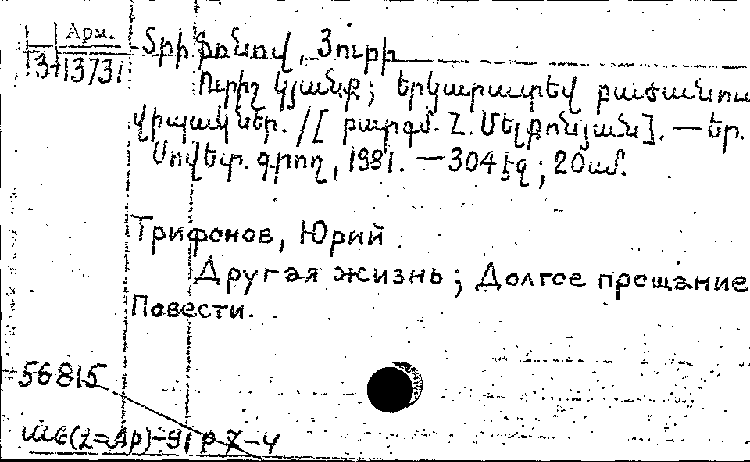 Арм.
13713731
Տրիֆոնով, Յուրի
Ուրիշ կյանք; Երկարատև բաժանում
վիպակներ. /[ թարգմ. Հ. Մելքոնյան]. — Եր.
Սովետ. գրող, 1981. — 304 էջ; 20 սմ.
Трифонов, Юрий.
Другая жизнь; Долгое прощание
Повести.
56815